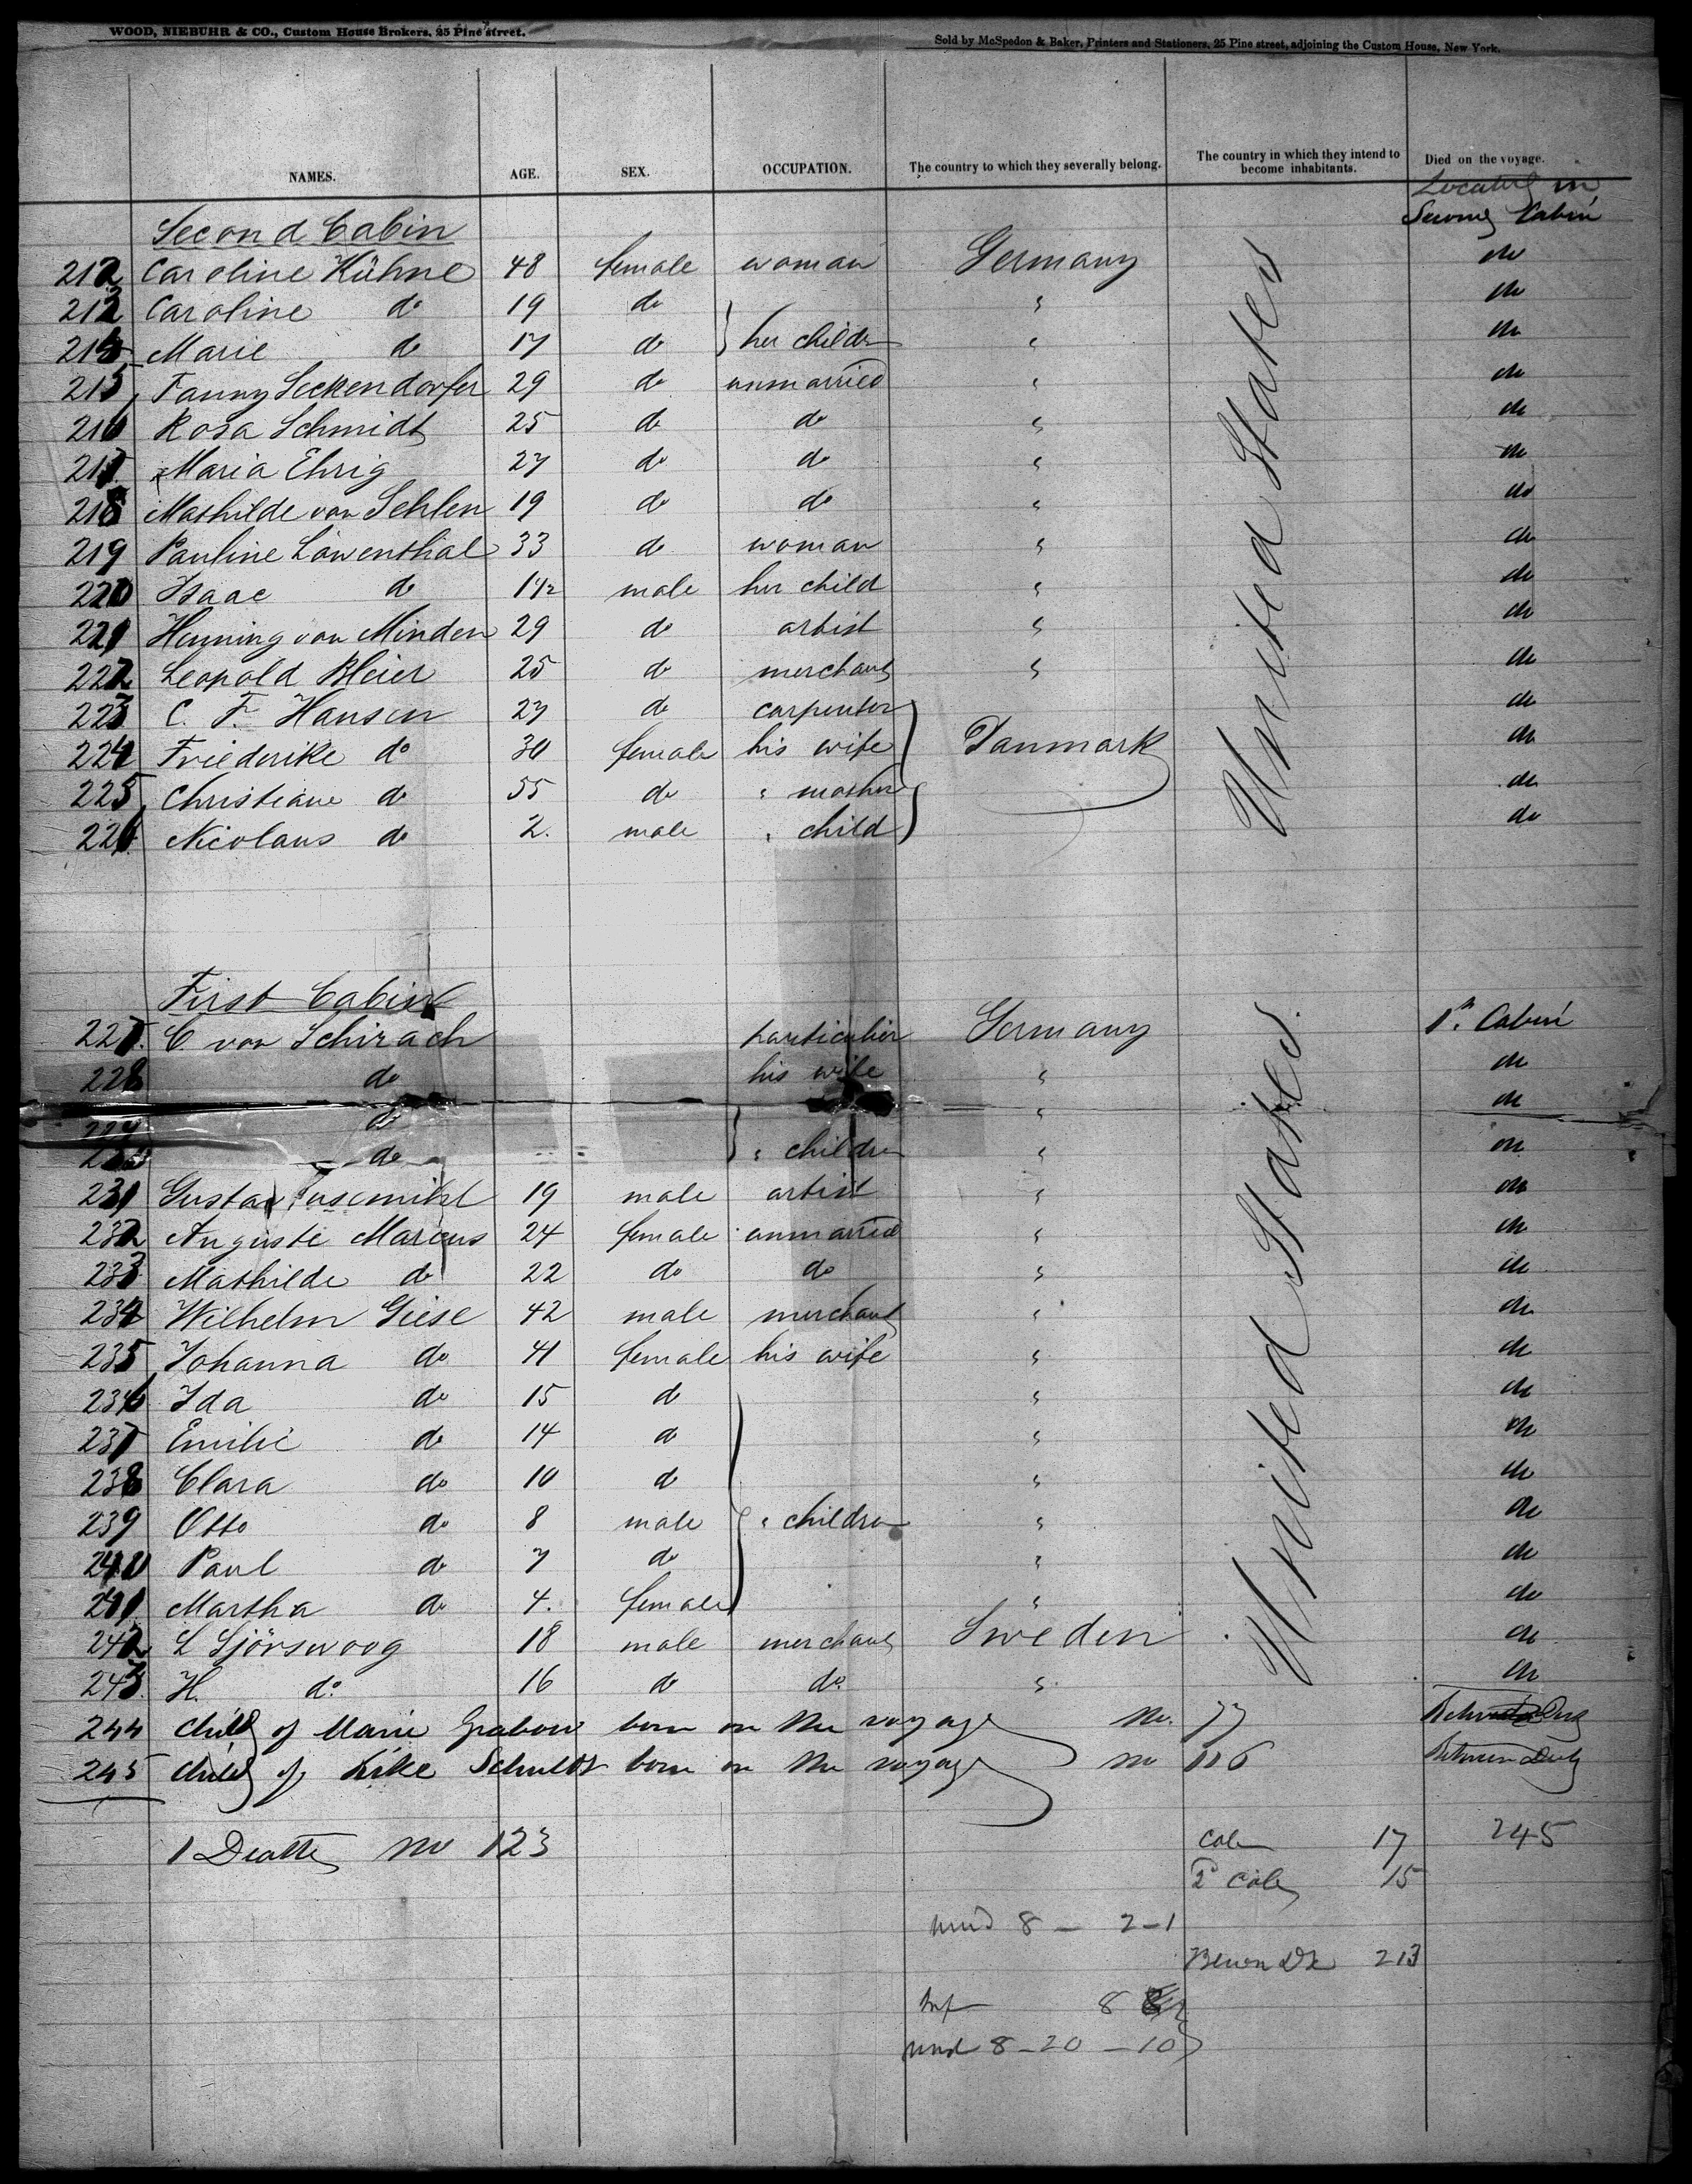 WOOD, NIEBUHR & CO., Custom House Brokers, 25 Pine street.
Sold by McSpedon & Baker, Printers and Stationers, 25 Pine street, adjoining the Custom House, New York.
NAMES. AGE. SEX. OCCUPATION. The country to which they severally belong. The country in which they intend to become inhabitants. Died on the voyage.
Located in
Second Cabin
Second Cabin
212 Caroline Kühne 48 female woman Germany United States do
213 Caroline do 19 do " do
214 Marie do 17 do } her childr " do
215 Fanny Seckendorfer 29 do unmarried " do
216 Rosa Schmidt 25 do do " do
217. Maria Ehrig 27 do do " do
218 Mathilde von Sehlen 19 do do " do
219 Pauline Löwenthal 33 do woman " do
220 Isaac do 1 1/2 male her child " do
221 Henning von Minden 29 do artist " do
222 Leopold Bleier 25 do merchant " do
223 C. F. Hansen 27 do carpenter do
224 Friederike do 30 female his wife } Danmark do
225 Christiane do 55 do " mother do
226 Nicolaus do 2. male " child do
First Cabin
227. C. von Schirach particulier Germany United States. 1st Cabin
228 do his wife " do
229 do " do
230 do } " children " do
231 Gustav 19 male artist " do
232 Auguste Marcus 24 female unmarried " do
233 Mathilde do 22 do do " do
234 Wilhelm Giese 42 male merchant " do
235 Johanna do 41 female his wife " do
236 Ida do 15 do " do
237 Emilie do 14 do " do
238 Clara do 10 do " do
239 Otto do 8 male } " children " do
240 Paul do 7 do " do
241 Martha do 4. female " do
242 L Sjörswoog 18 male merchant Sweden do
243. H. do. 16 do do. " do
244 Child of Marie Grabow born on the voyage No. 77
245 Child of Silke Schuldt born on the voyage No 116 Between Deck
1 Death No 123
Cab 17 245
2d Cab 15
und 8 — 2-1
213
Inf 8
und 8-20-10